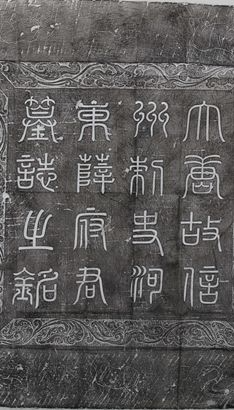 大唐故信
州刺史河
東薛府君
墓誌之銘